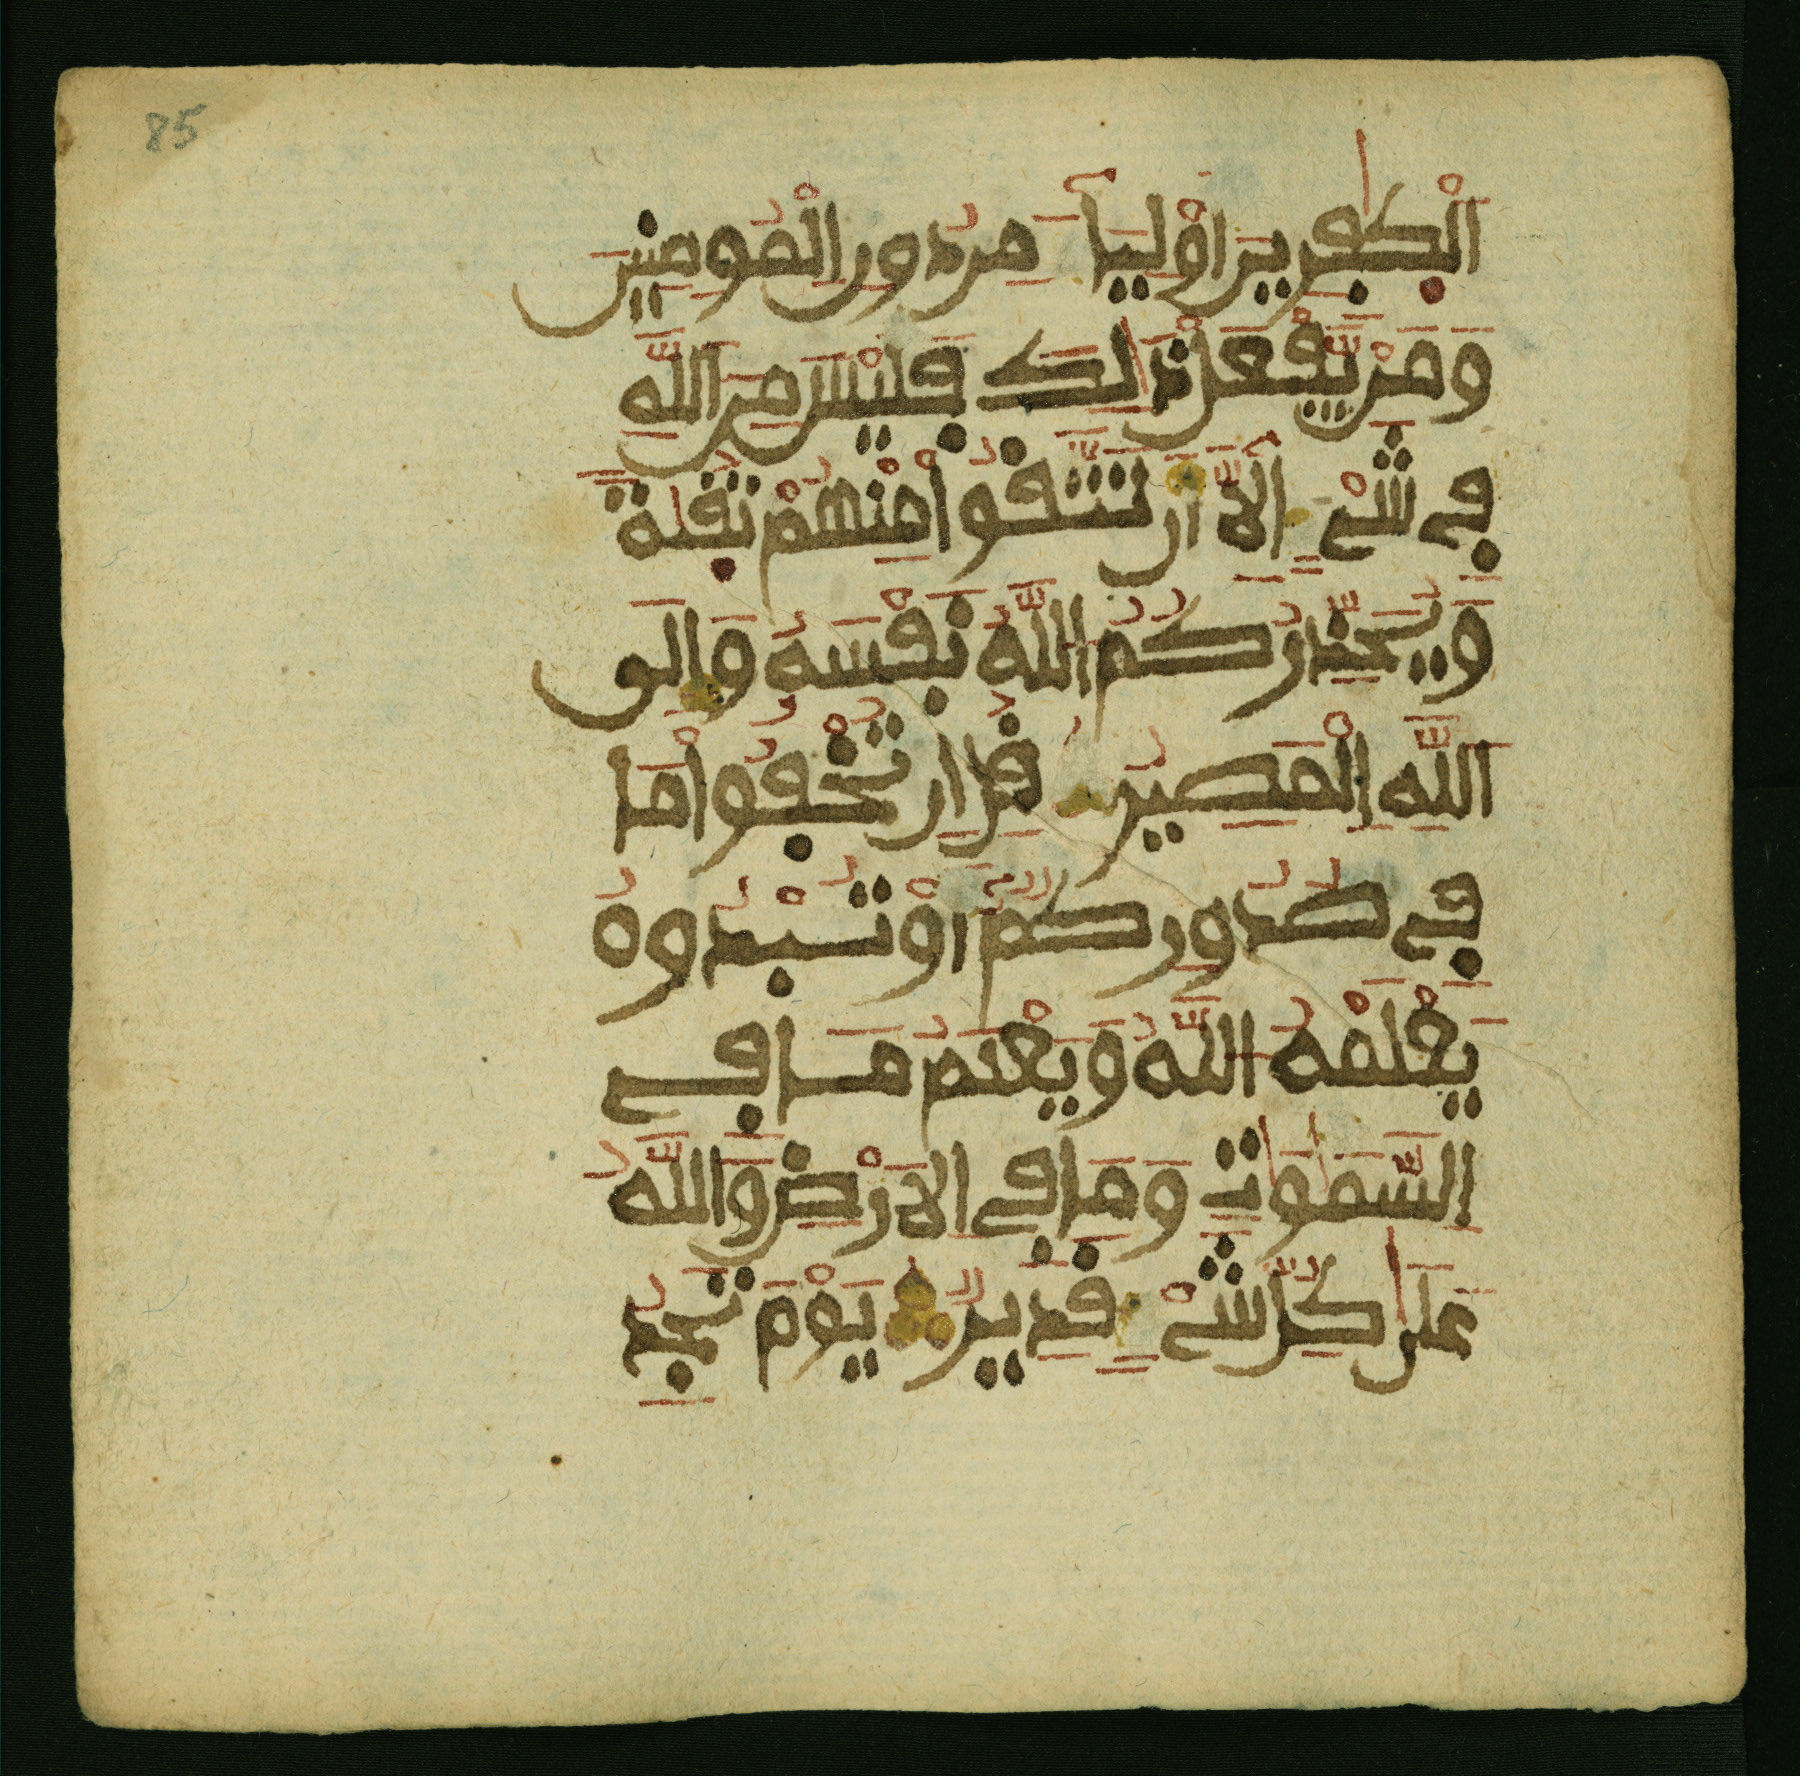 85
اَ۬لْكٰ۪فِرِينَ أَوْلِيَآءَ مِن دُونِ اِ۬لْمُومِنِينَ
وَمَنْ يَّفْعَلْ ذَٰلِكَ فَلَيْسَ مِنَ اَ۬للَّهِ
فِے شَےْءٍ اِلَّآ أَن تَتَّقُواْ مِنْهُمْ تُق۪ىٰةً
وَيُحَذِّرُكُمُ اُ۬للَّهُ نَفْسَهُۥ وَإِلَى
اَ۬للَّهِ اِ۬لْمَصِيرُ قُلِ اِن تُخْفُواْ مَا
فِے صُدُورِكُمُۥٓ أَوْ تُبْدُوهُ
يَعْلَمْهُ اُ۬للَّهُ وَيَعْلَمُ مَا فِے
اِ۬لسَّمَٰوَٰتِ وَمَا فِے اِ۬لَارْضِ وَاللَّهُ
عَلَىٰ كُلِّ شَےْءٍ قَدِيرٌ يَوْمَ تَجِدُ